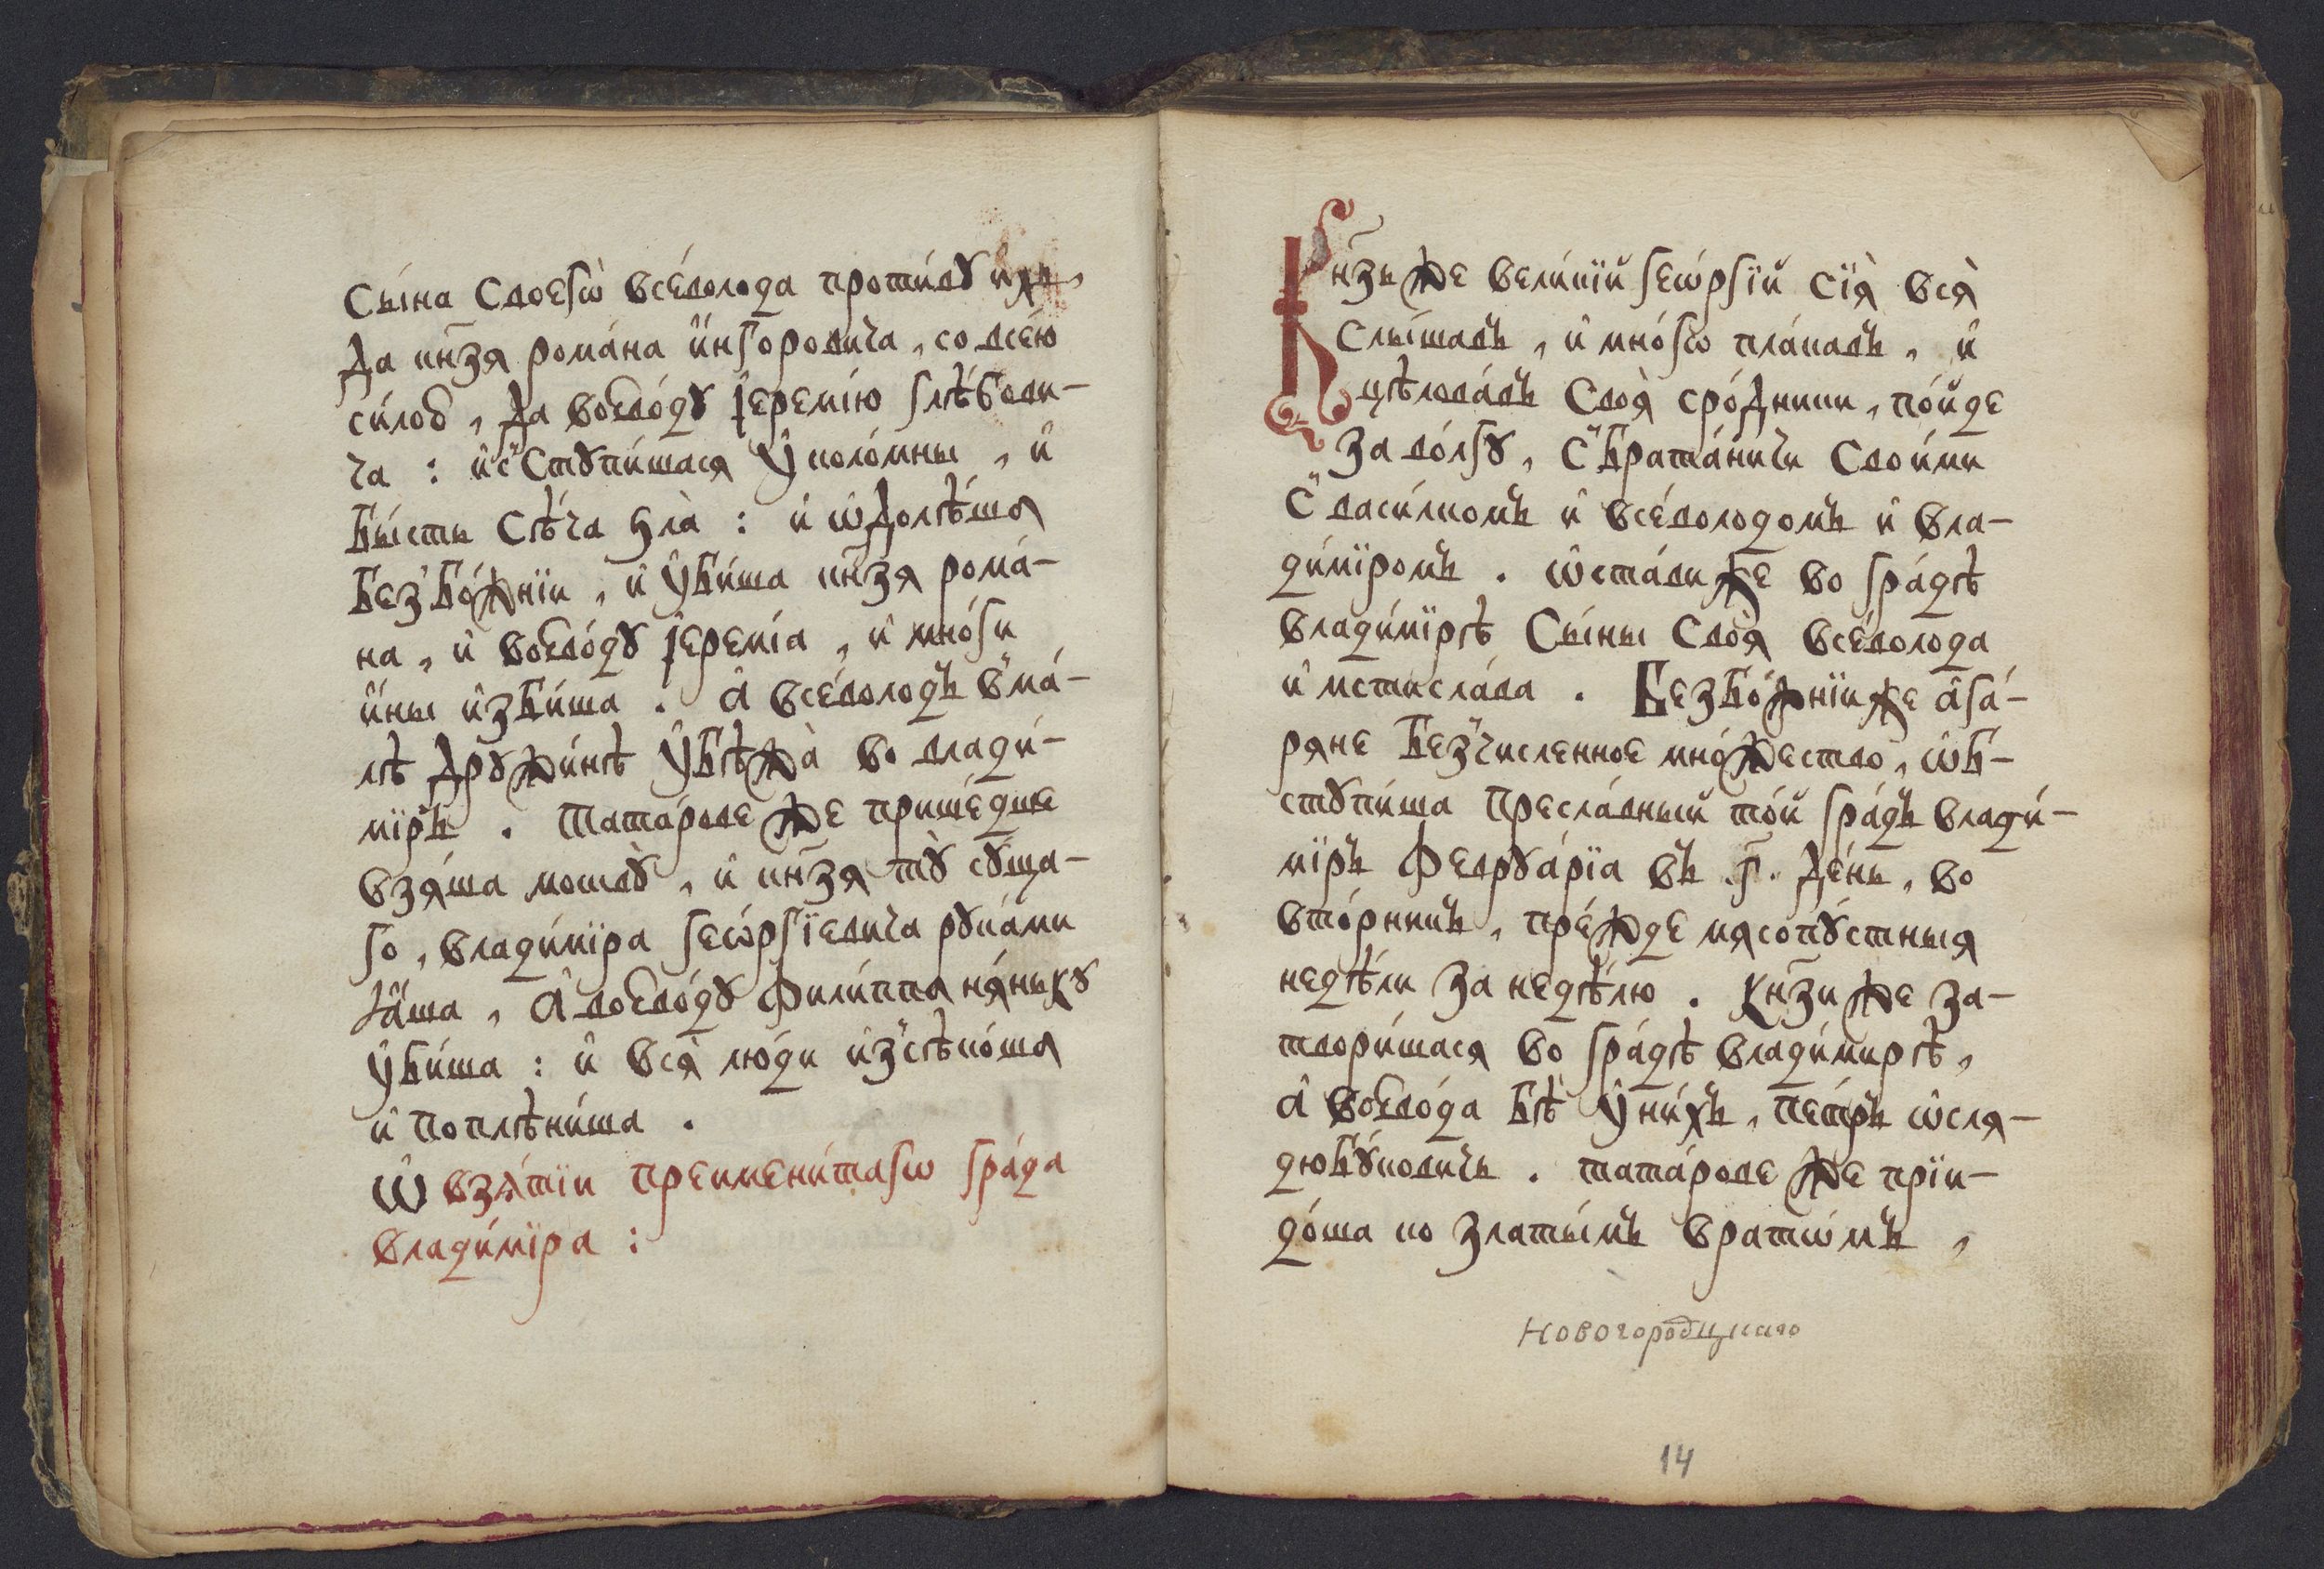 Сы́на Своегѡ̀ всеволода проти́вꙋ и҆́хъ,
Да кн҃зя рома́на и҆нгоровича, со всею
си́лою, Да воево́дꙋ І҆еремі́ю глѣ́бови-
ча : и҆ сⸯСтꙋпи́шася ᲂу҆ коло́мны, и҆
Бы́сть Сѣ́ча ѕла̀ : и҆ ѡ҆Долѣ́ша
Безⸯбо́жнїи, и҆ ᲂу҆Би́ша кн҃зя рома́-
на, и҆ воево́дꙋ І҆еремі́а, и҆ мно́ги
и҆ны и҆зби́ша. А҆ все́володъ вⸯма́-
лѣ Дрꙋжи́нѣ ᲂу҆Бѣжа̀ во влади́-
мїръ. Тата́рове же прише́дше
взя́ша москвꙋ̀, и҆ кн҃зя тꙋ̀ сꙋ́ща-
го, влади́мїра геѡ́ргїевича рꙋка́ми
ꙗ҆́ша, А҆ воево́дꙋ Фили́ппа ня́нькꙋ
ᲂу҆Би́ша : и҆ вся̀ лю́ди и҆зⸯсѣко́ша
и҆ поплѣни́ша.
Ѡ҆ взя́тїи преимени́тагѡ гра́да
влади́мїра :
Кн҃зь же вели́кїй геѡ́ргїй сїя̀ вся̀
слы́шавъ, и҆ мно́гѡ пла́кавъ, и҆
цѣлова́въ Своя̀ сро́Дники, по́йде
за во́лгꙋ, сⸯБрата́ничи Свои́ми
сⸯваси́лкомъ и҆ все́володомъ и҆ вла-
ди́мїромъ. ѡ҆ста́ви же во гра́дѣ
влади́мїрѣ Сы́ны Своя̀ все́волода
и҆ мстисла́ва. Безбо́жнїи же а҆га́-
ряне Безⸯчисленное мно́жество, ѡ҆б-
стꙋпи́ша пресла́вный то́й гра́дъ влади́-
мїръ Феврꙋа́рїа въ .г҃. Де́нь, во
вто́рникъ, пре́жде мясопꙋ́стныя
недѣ́ли за недѣ́лю. Кн҃зи же за-
твори́шася во гра́дѣ влади́мирѣ,
А҆ воево́да Бѣ̀ ᲂу҆ ни́хъ, пе́тръ ѡ҆сля-
дюбꙋ́ковичь. тата́рове же прїи-
до́ша ко златы́мъ вратѡ́мъ,
Новогородцкаго
14